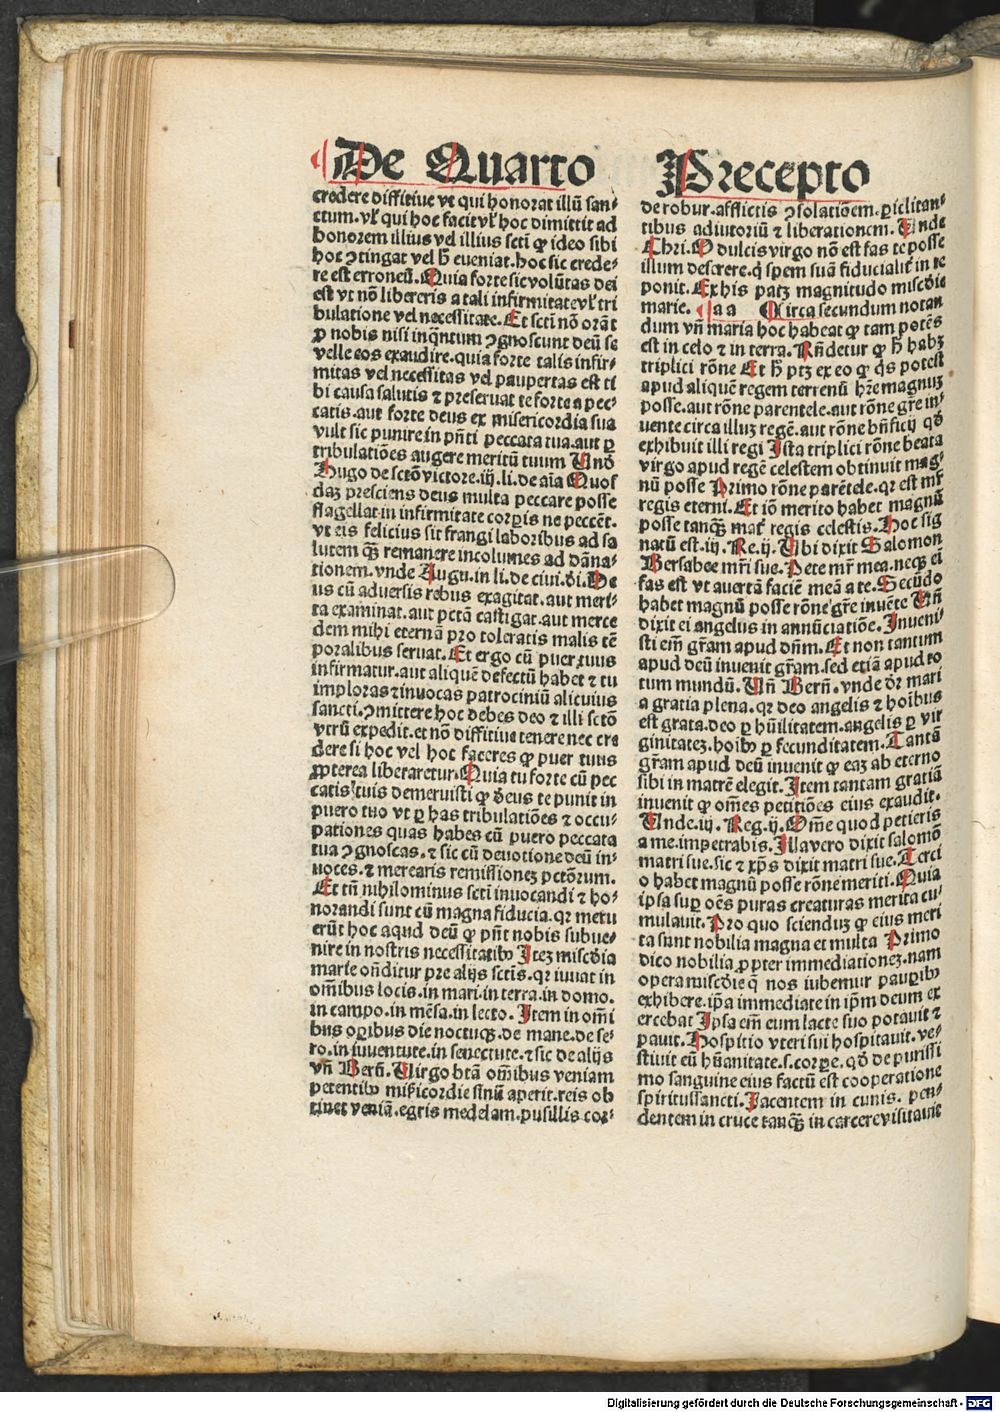 De Quarto
credere diffitiue vt qui honorat illū san⸗
ctum. vl̕ qui hoc facit vl̕ hoc dimittit ad
honorem illius vel illius scti ꝙ ideo sibi
hoc ꝯtingat vel h̄ eueniat. hoc sic crede⸗
re est erroneū. Quia forte sic volūtas dei
est vt nō libereris a tali infirmitate vl̕ tri
bulatione vel necessitate. Et scti nō orāt
ꝓ nobis nisi inqͣntum ꝯgnoscunt deū se
velle eos exaudire. quia forte talis infir⸗
mitas vel necessitas vel paupertas est ti
bi causa salutis ⁊ preseruat te forte a pec⸗
catis. aut forte deus ex misericordia sua
vult sic punire in pn̄ti peccata tua. aut ꝑ
tribulatiōes augere meritū tuum Vnd̕
Hugo de sctō victore. iij. li. de aīa Quos
daꝫ presciens deus multa peccare posse
flagellat in infirmitate corꝑis ne peccēt.
vt eis felicius sit frangi laboribus ad sa
lutem qͣꝫ remanere incolumes ad dāna⸗
tionem. vnde Augu. in li. de ciui. di̕. De
us cū aduersis rebus exagitat. aut meri⸗
ta examinat. aut pctā castigat. aut merce
dem mihi eternā pro toleratis malis tē
poralibus seruat. Et ergo cū puer tuus
infirmatur. aut aliquē defectū habet ⁊ tu
imploras ⁊ inuocas patrociniū alicuius
sancti. ꝯmittere hoc debes deo ⁊ illi sctō
vtrū expedit. et nō diffitiue tenere nec cre
dere si hoc vel hoc faceres ꝙ puer tuus
ꝓpterea liberaretur. Quia tu forte cū pec
catis tuis demeruisti ꝙ deus te punit in
puero tuo vt ꝑ has tribulatiōes ⁊ occu⸗
pationes quas habes cū puero peccata
tua ꝯgnoscas. ⁊ sic cū deuotione deū in⸗
uoces. ⁊ merearis remissionez pctōrum.
Et tn̄ nihilominus scti inuocandi ⁊ ho⸗
norandi sunt cū magna fiducia. qr meru
erūt hoc aqud deū ꝙ pn̄t nobis subue⸗
nire in nostris necessitatibꝰ Itez misc̄dia
marie on̄ditur pre alijs sctīs. qr iuuat in
om̄ibus locis. in mari. in terra. in domo.
in campo. in mēsa. in lecto. Item in om̄i
bus oꝑibus die noctuqꝫ. de mane. de se⸗
ro. in iuuentute. in senectute. ⁊ sic de alijs
vn̄ Bern̄. Virgo btā om̄ibus veniam
petentibꝰ mis̕icordie sinū aperit. reis ob
tinet veniā. egris medelam. pusillis cor⸗
Precepto
de robur. afflictis ꝯsolatiōem. ꝑiclitan⸗
tibus adiutoriū ⁊ liberationem. Vnde
Chri. O dulcis virgo nō est fas te posse
illum deserere. q̄ spem suā fiducialit̕ in te
ponit. Ex his patꝫ magnitudo misc̄die
marie. ¶ a a Circa secundum notan
dum vn̄ maria hoc habeat ꝙ tam potēs
est in celo ⁊ in terra. Rn̄detur ꝙ h̄ habꝫ
triplici rōne Et h̄ ptꝫ ex eo ꝙ qͥs potest
apud aliquē regem terrenū hr̄e magnuꝫ
posse. aut rōne parentele. aut rōne gr̄e in⸗
uente circa illuꝫ regē. aut rōne bn̄ficij qd̕
exhibuit illi regi Ista triplici rōne beata
virgo apud regē celestem obtinuit mag⸗
nū posse Primo rōne parētele. qr est mr̄
regis eterni. Et iō merito habet magnū
posse tanqͣꝫ mat̕ regis celestis. Hoc sig
natū est. iij. Re. ij. Vbi dixit Salomon
Bersabee mr̄i sue. Pete mr̄ mea. neqꝫ eī
fas est vt auertā faciē meā a te. Secūdo
habet magnū posse rōne gr̄e inuēte Vn̄
dixit ei angelus in annūciatiōe. Inueni⸗
sti em̄ gr̄am apud dn̄m. Et non tantum
apud deū inuenit gr̄am. sed etiā apud to
tum mundū. Vn̄ Bern̄. vnde dr̄ mari
a gratia plena. qr deo angelis ⁊ hoībus
est grata. deo ꝑ hūilitatem. angelis ꝑ vir
ginitatez. hoībꝰ ꝑ fecunditatem. Tantā
gr̄am apud deū inuenit ꝙ eaꝫ ab eterno
sibi in matrē elegit. Item tantam gratiā
inuenit ꝙ om̄es petitiōes eius exaudit.
Vnde. iij. Reg. ij. Om̄e quod petieris
a me. impetrabis. Illa vero dixit salomō
matri sue. sic ⁊ xp̄s dixit matri sue. Terci
o habet magnū posse rōne meriti. Quia
ipsa suꝑ oēs puras creaturas merita cu⸗
mulauit. Pro quo sciendūꝫ ꝙ eius meri
ta sunt nobilia magna et multa Primo
dico nobilia ꝓpter immediationez. nam
opera misc̄die q̄ nos iubemur pauꝑibꝰ
exhibere. ip̄a immediate in ip̄m deum ex
ercebat Ipsa em̄ eum lacte suo potauit ⁊
pauit. Hospitio vteri sui hospitauit. ve⸗
stiuit eū hūanitate. s. corꝑe. qd̕ de purissi
mo sanguine eius factū est cooperatione
spiritussancti. Iacentem in cunis. pen⸗
dentem in cruce tanqͣꝫ in carcere visitauit
Digitalisierung gefördert durch die Deutsche Forschungsgemeinschaft - DFG